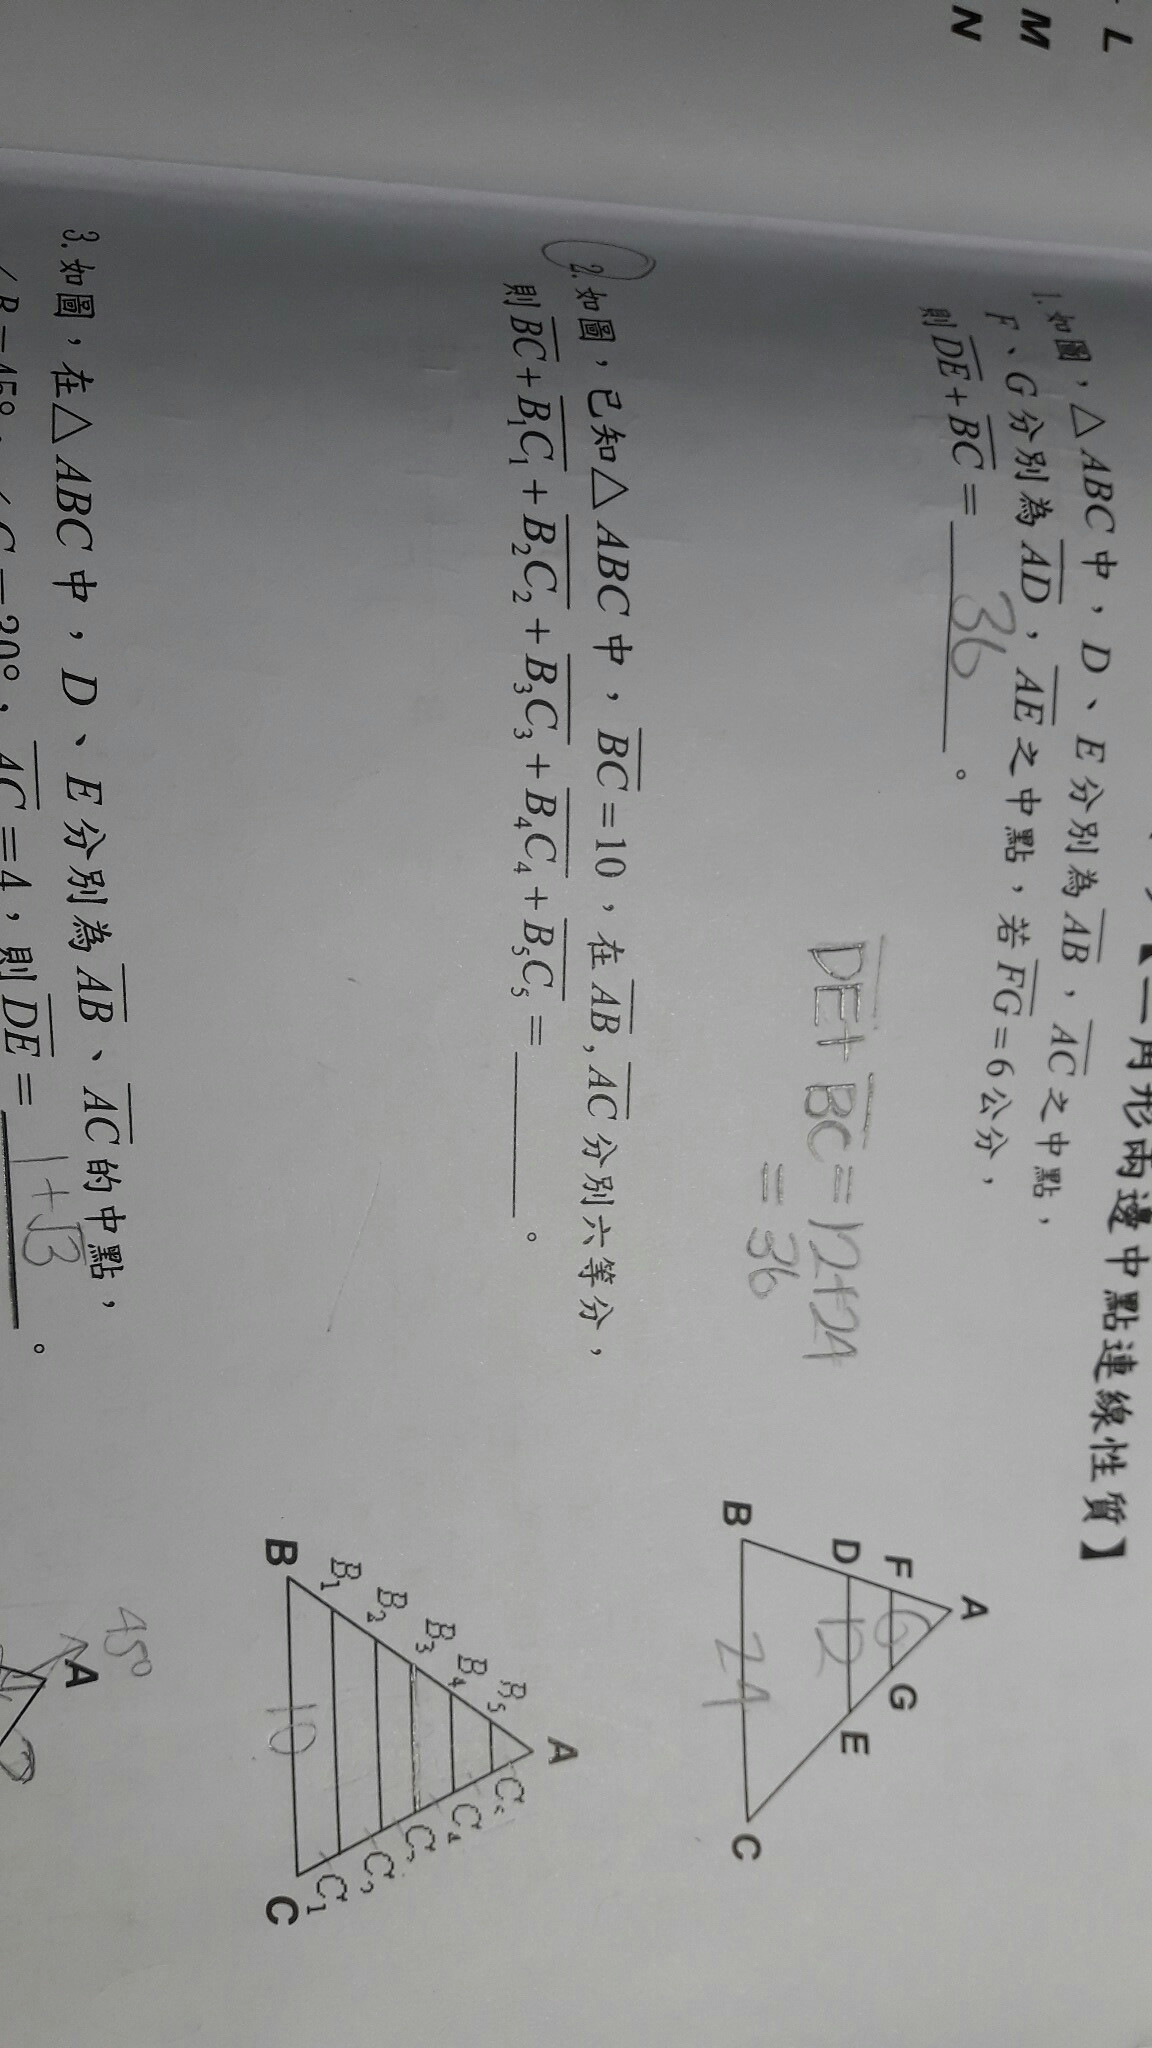 L
M
N
角形兩邊中點連線性質】
1.如圖，△ABC中，D、E分別為AB，AC之中點，
F、G分別為AD，AE之中點，若FG=6公分，
則DE+BC=36。
DE+BC=12+24
=36
A
F
G
6
D
E
12
B
C
24
2.如圖，已知△ABC中，BC=10，在AB,AC分別六等分，
則BC+B₁C₁+B₂C₂+B₃C₃+B₄C₄+B₅C₅=＿＿＿。
A
B₅
C₅
B₄
C₄
B₃
C₃
B₂
C₂
B₁
C₁
B
C
10
3.如圖，在△ABC中，D、E分別為AB、AC的中點，
∠B=45°，∠C=30°，AC=4，則DE=1+√3。
45°
A